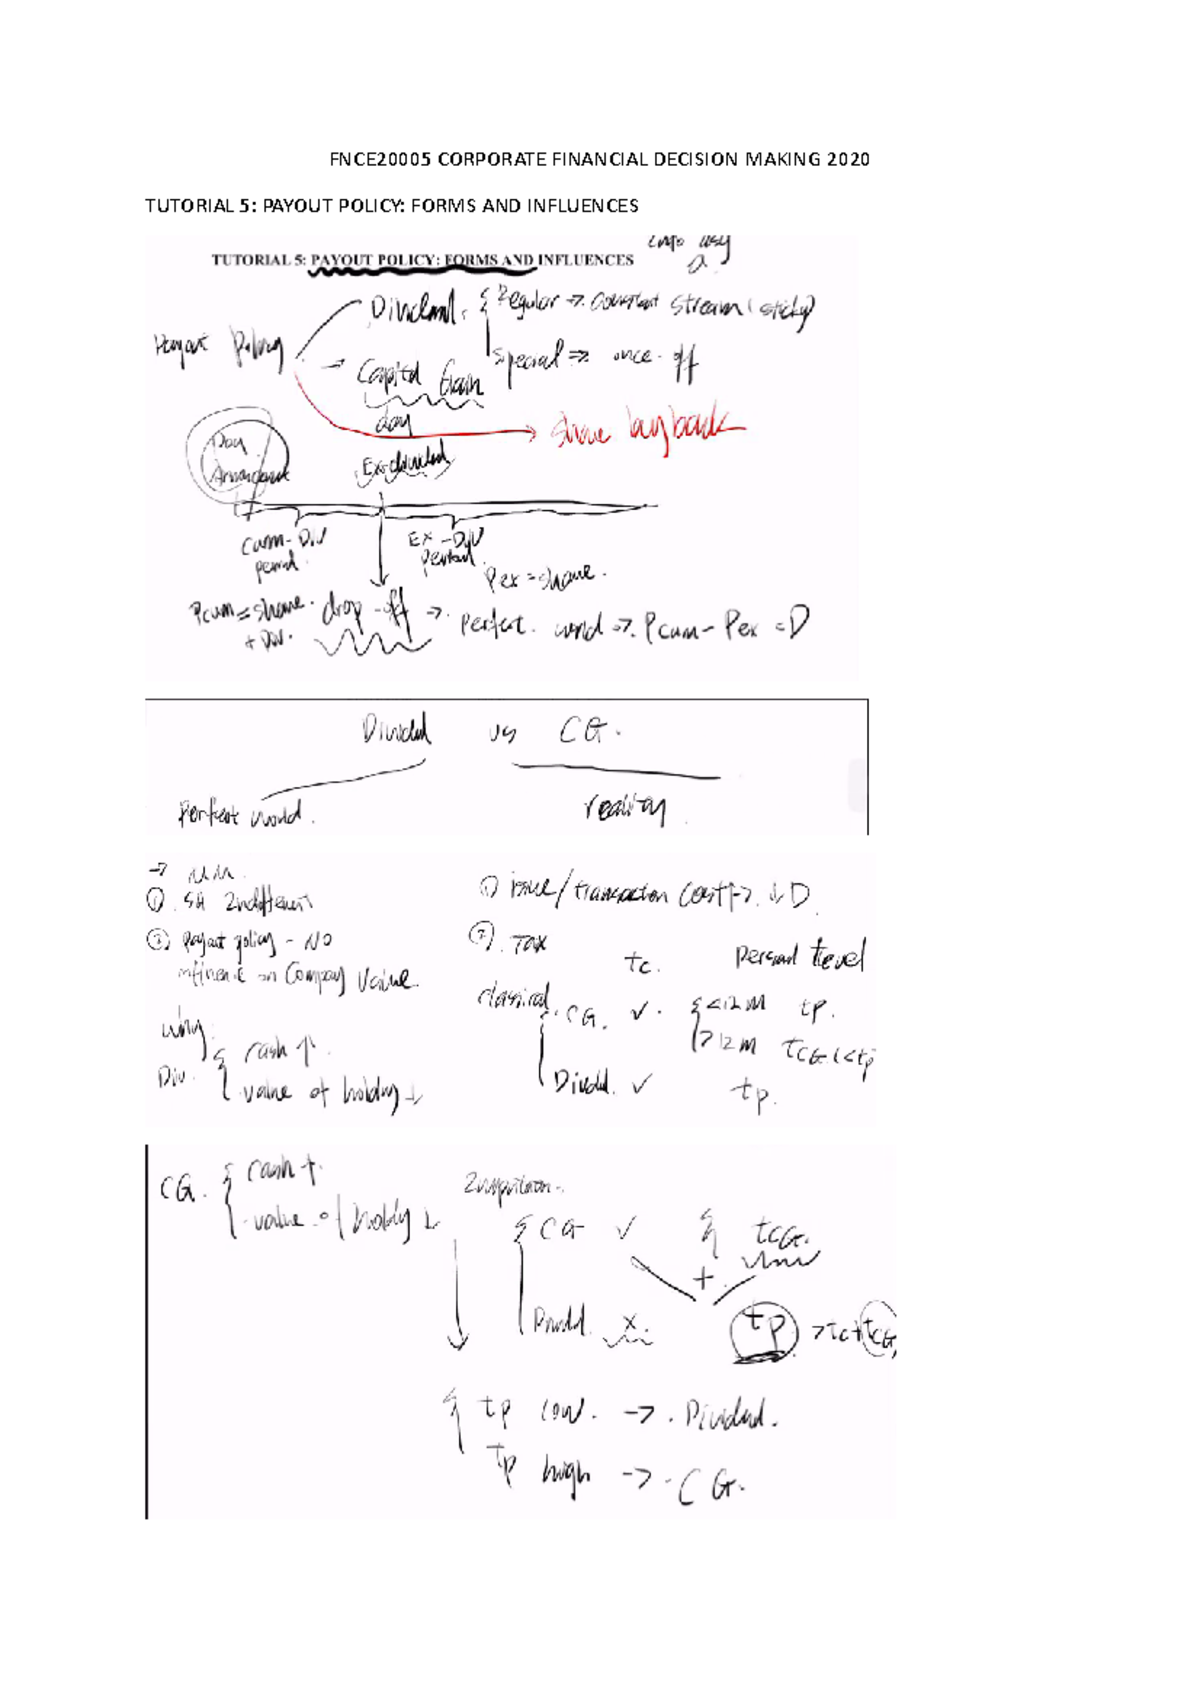 FNCE20005 CORPORATE FINANCIAL DECISION MAKING 2020
TUTORIAL 5: PAYOUT POLICY: FORMS AND INFLUENCES
Info asy
TUTORIAL 5: PAYOUT POLICY: FORMS AND INFLUENCES
Dividend. { Regular → constant stream (sticky)
Payout Policy
Special ⇒ once-off
→ Capital Gain
day
→ share buyback
Day
Ex-dividend
Cum-Div period
Ex-Div Period
Pex = share.
Pcum = share + Div.
drop-off → Perfect world → Pcum - Pex = D
Dividend vs CG.
Perfect world.
reality
→ MM.
① SH Indifferent
② Payout policy - NO
influence on Company Value.
why
Div. { cash ↑
value of holding ↓
① issue/transaction cost → ↓ D
② Tax
tc. Personal level
classical. { CG. ✓. { <12M tp.
>12M tCG (<tp
Dividend. ✓ tp.
CG. { cash ↑
value of holding ↓
Imputation.
{ CG ✓ { tCG.
+
Dividend. x. tp > tc + tCG
{ tp low. → Dividend.
tp high → CG.